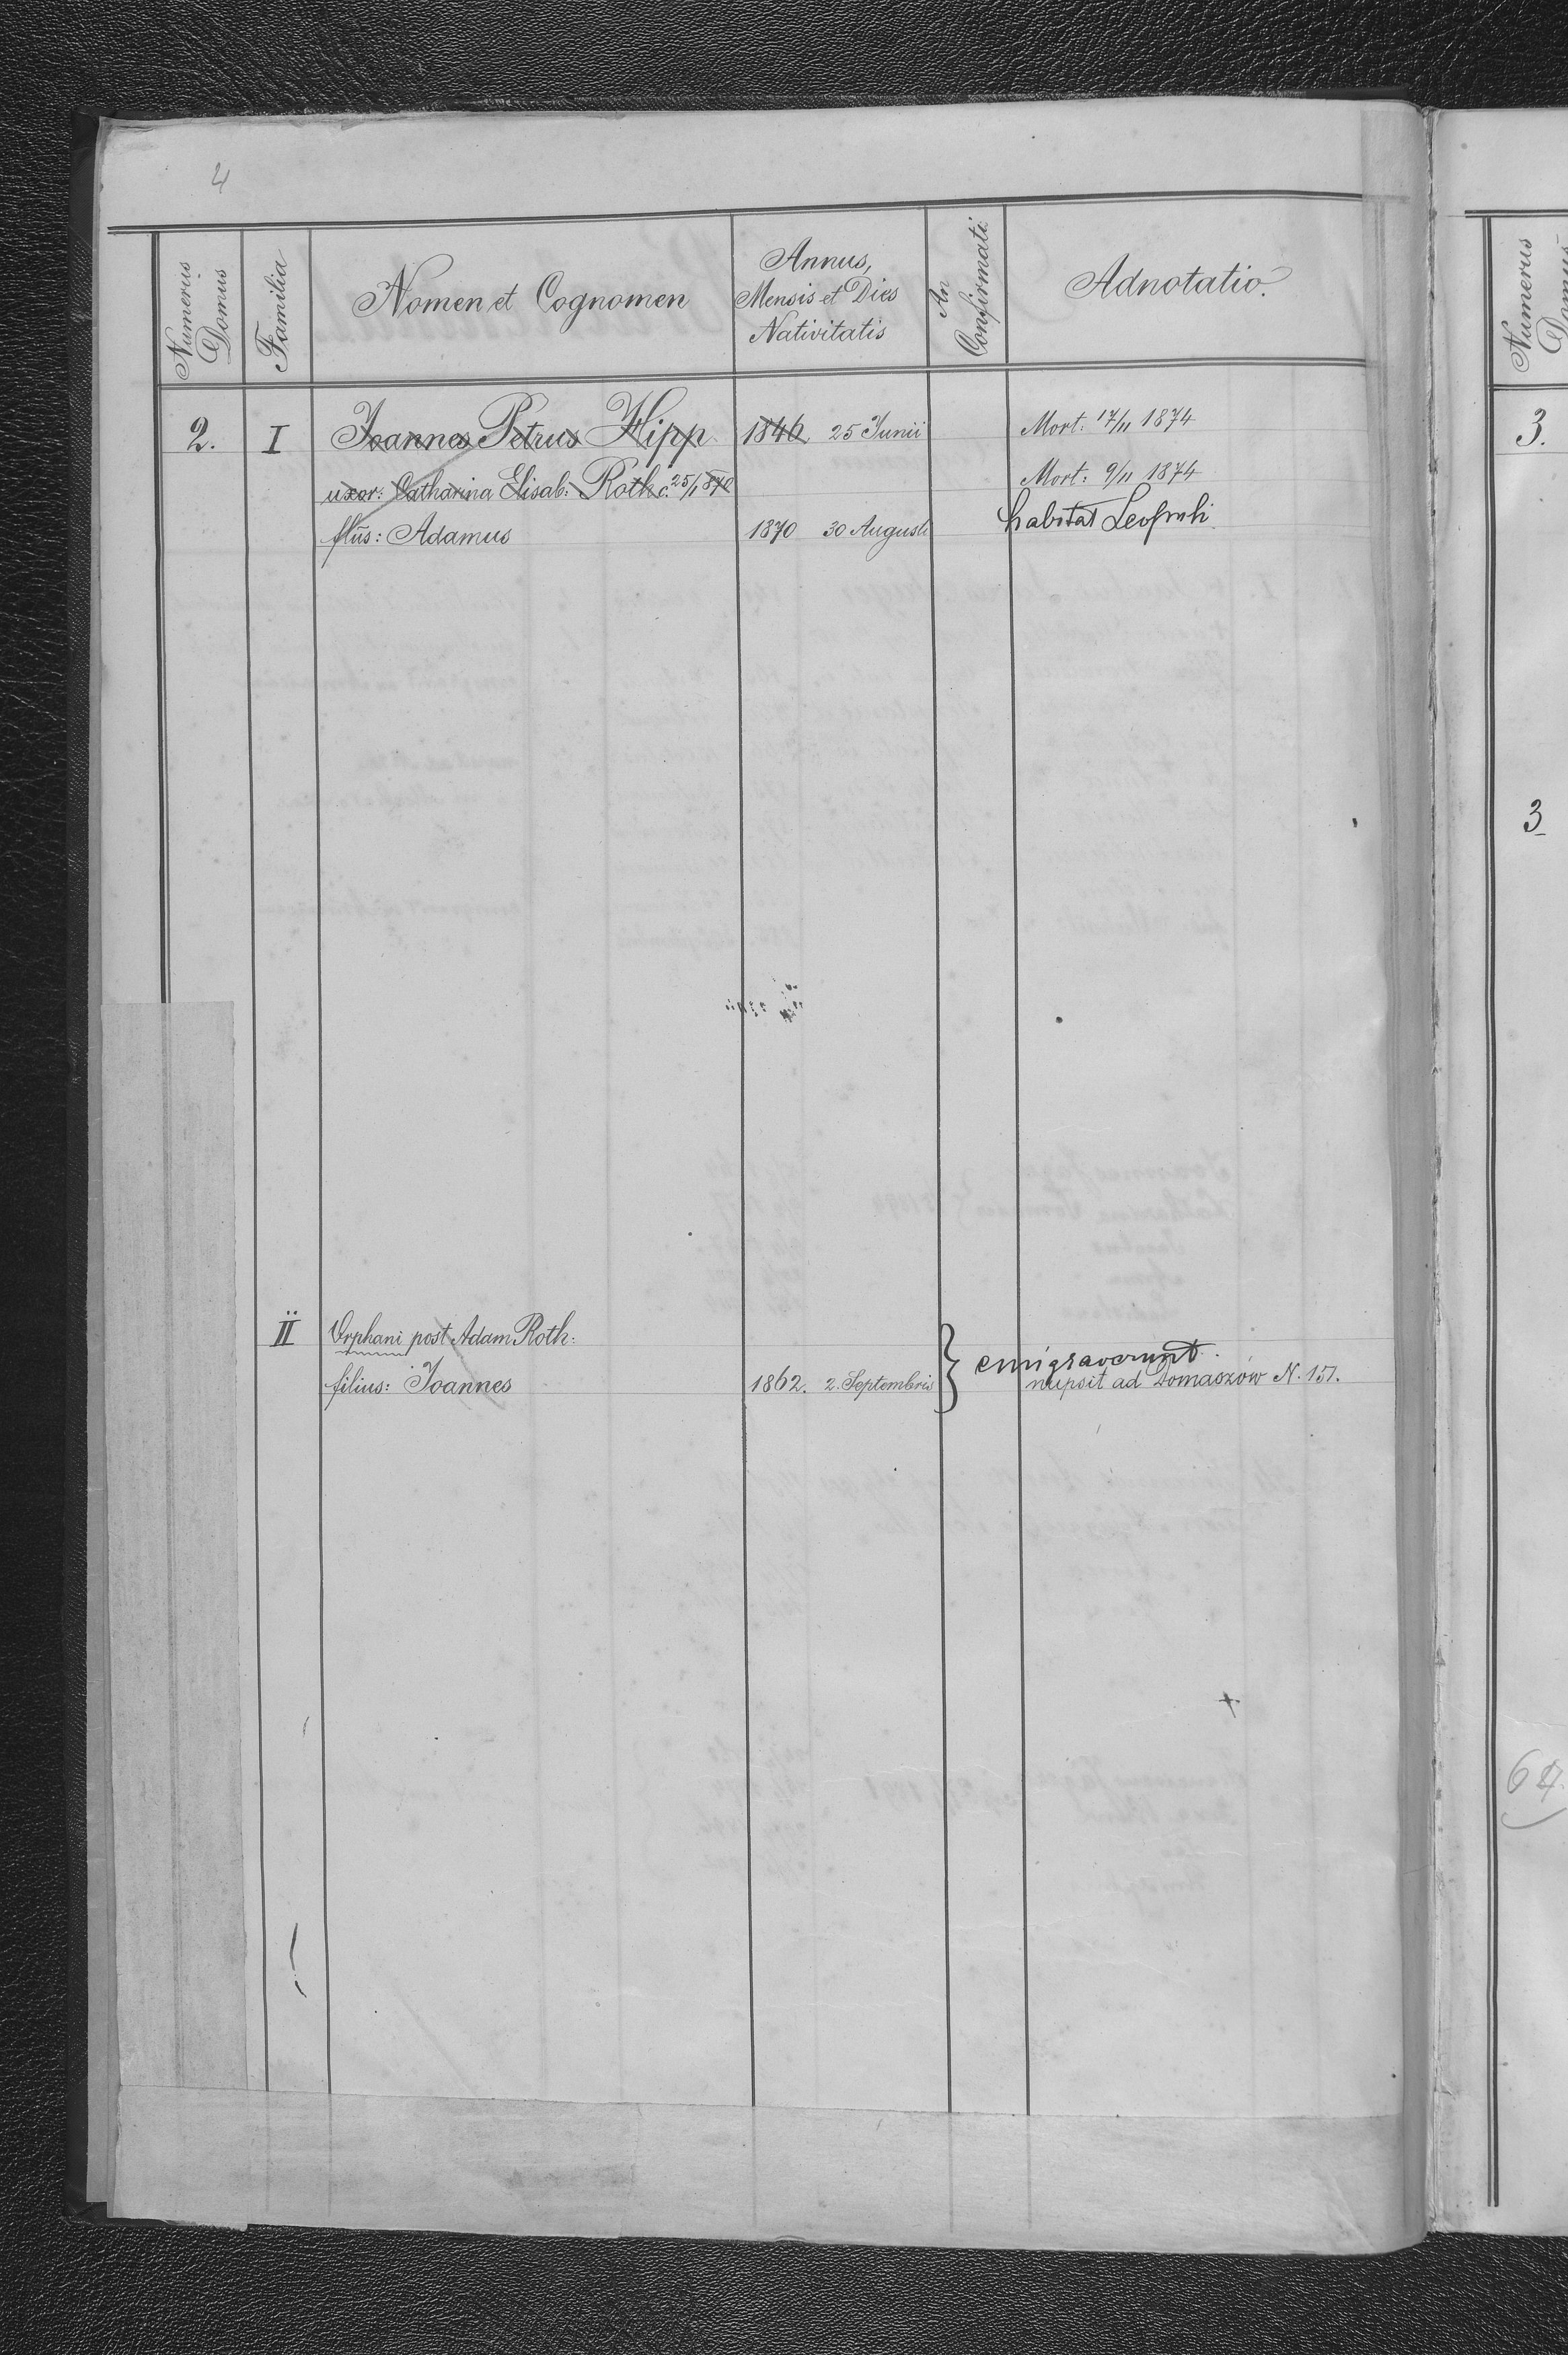 4
Numerus Domus
Familia
Nomen et Cognomen
Annus, Mensis et Dies Nativitatis
An Confirmati
Adnotatio.
2. I Joannes Petrus Hipp 1846 25 Junii Mort: 17/11 1874
uxor: Catharina Elisab: Roth c. 25/1 870 Mort: 9/11 1874
flũs: Adamus 1870 30 Augusti habitat Leopoli
II Orphani post Adam Roth:
emigraverunt.
filius: Joannes 1862. 2. Septembris nupsit ad Domaszów N. 151.
Numerus
Domus
3.
3
64.